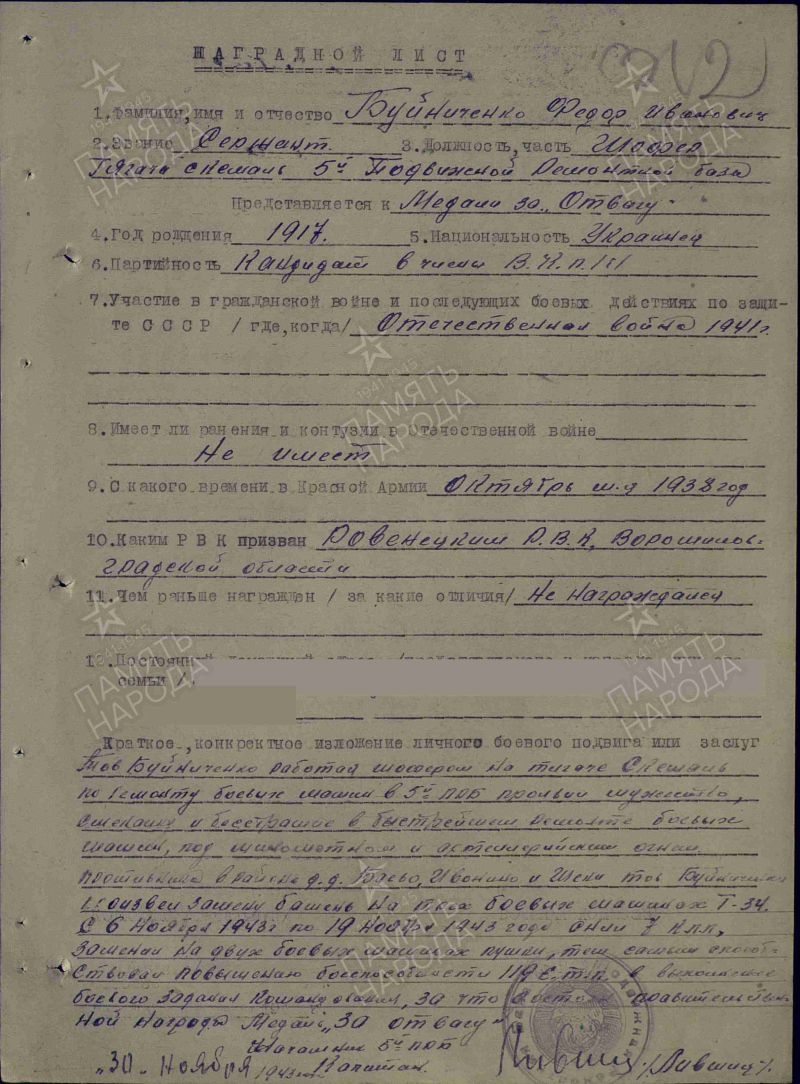 НАГРАДНОЙ ЛИСТ
1. Фамилия, имя и отчество Буйниченко Федор Иванович
2. Звание Сержант. 3. Должность, часть Шофер
Тягача 5й Подвижной Ремонтной база
Представляется к Медали за "Отвагу"
4. Год рождения 1917. 5. Национальность Украинец
6. Партийность Кандидат в члены В.К.П.
7. Участие в гражданской войне и последующих боевых действиях по защи-
те С С С Р / где, когда/ Отечественная война 1941 г.
8. Имеет ли ранения и контузии в Отечественной войне
Не имеет
9. С какого времени в Красной Армии Октябрь м-ц 1938 год
10. Каким Р В К призван Ровенецким Р.В.К. Ворошилов-
градской области
11. Чем раньше награжден / за какие отличия/ Не Награждался
12. Постоянный
семьи /
Краткое, конкретное изложение личного боевого подвига или заслуг
Тов Буйниченко работая шофером на тягаче
по ремонту боевых машин в 5й ПРБ проявил мужество,
смекалку и бесстрашие в быстрейшем ремонте боевых
машин, под минометным и артилерийским огнем
противника в районе д.д. Баево, Ивонино и тов Буйниченко
произвел замену башень на трех боевых машинах Т-34.
С 6 Ноября 1943г по 19 Ноября 1943 года снял 7 К.п.п.,
заменил на двух боевых машинах пушки, тем самым способ-
ствовал повышению боеспособности 119 с.т.п. в выполнение
боевого задания Командования, за что достоин правительствен-
ной Награды Медаль "За отвагу"
Начальник 5й ПРБ
Капитан /Лившиц/.
"30" Ноября 1943г.
ПАМЯТЬ
НАРОДА
1941-1945